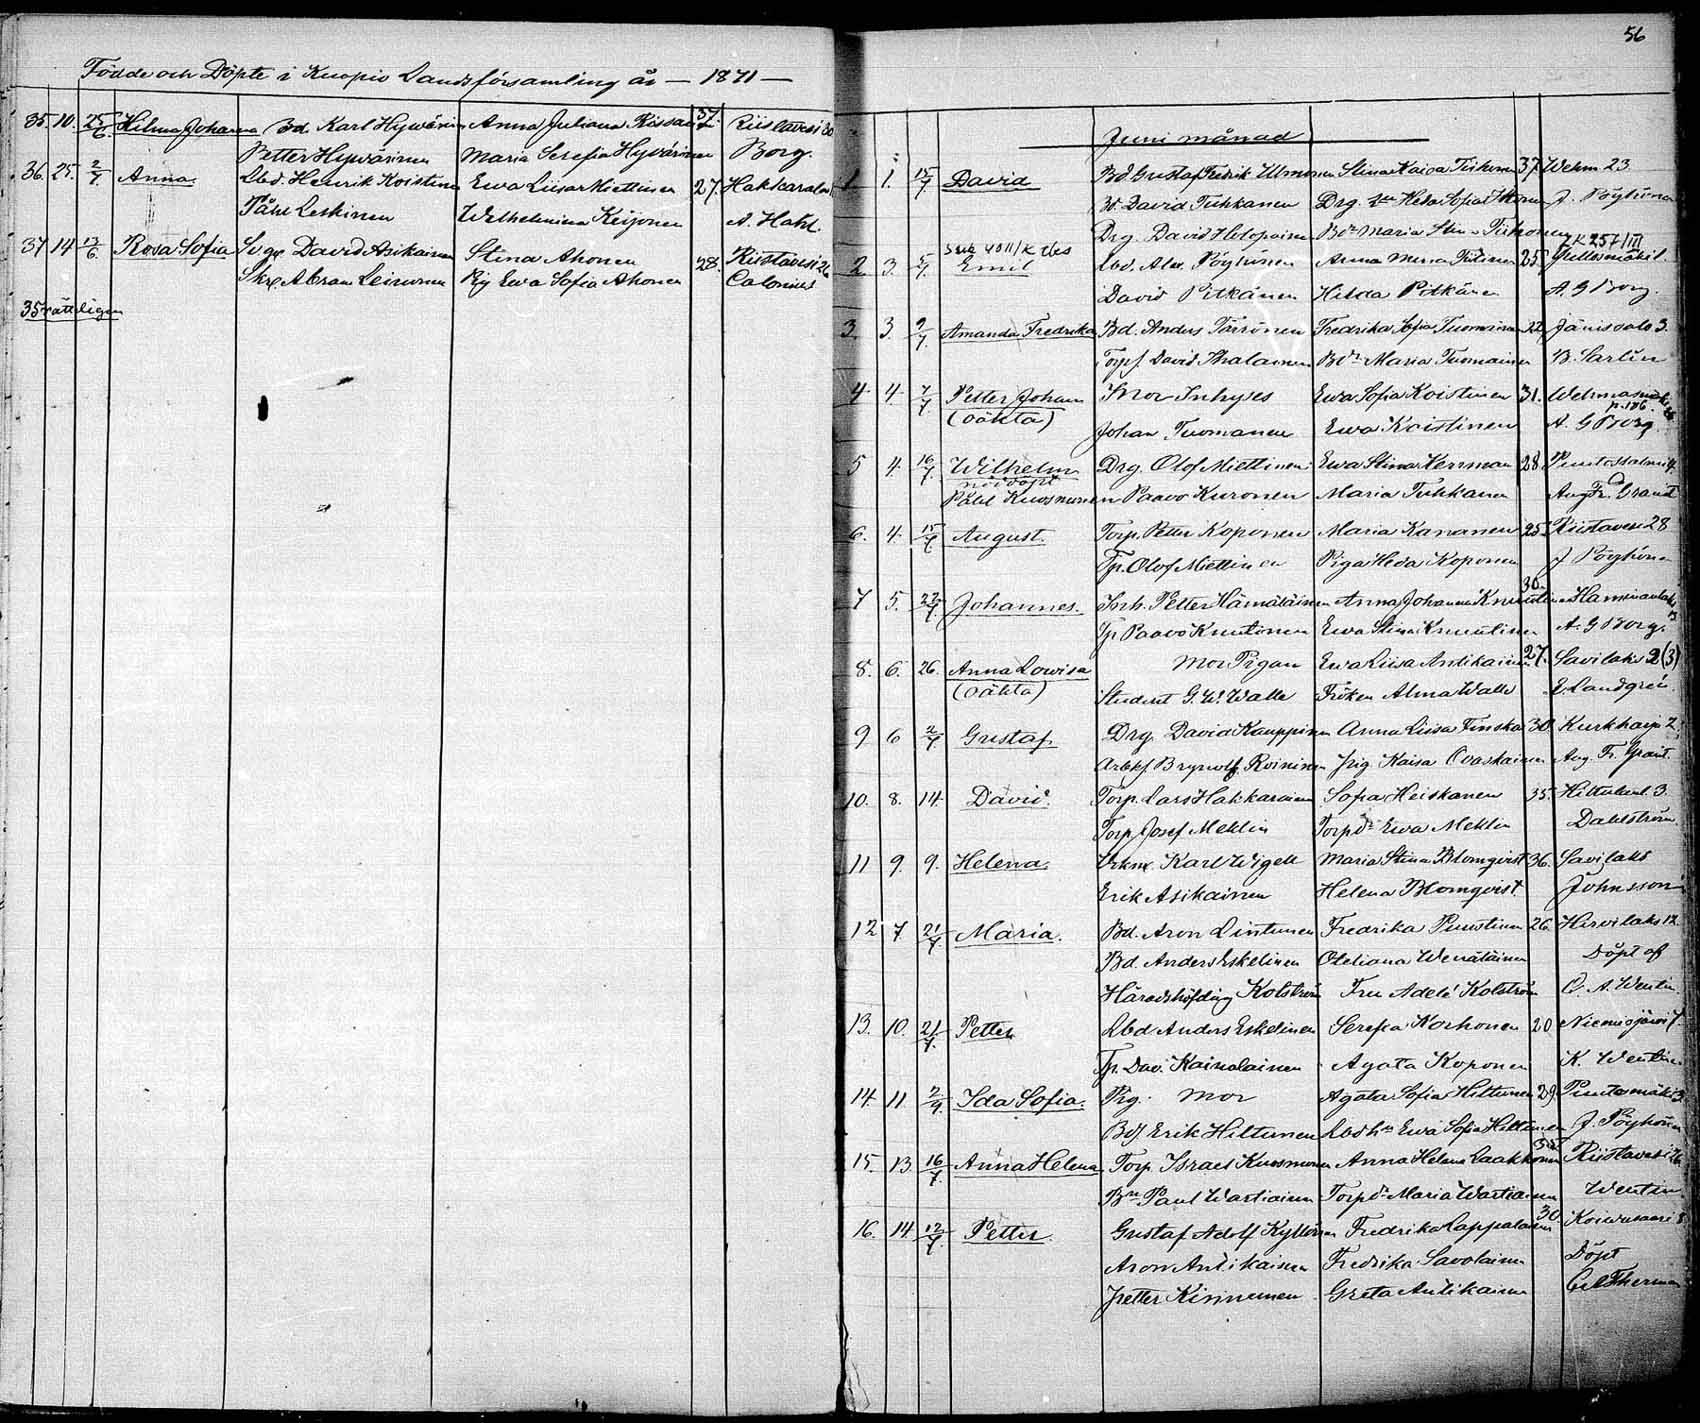 Födde och Döpte i Kuopio Landsförsamling år — 1871 —
35. 10. 25/6. Hilma Johanna Bd. Karl Hyvärin Anna Juliana Rissan 37. Riistavesi 30
Petter Hyvärinen Maria Serefia Hyvärinen Borg.
36. 25. 2/7. Anna Lbd. Henrik Koistinen Ewa Liisa Miettinen 27. Hakkarala
Påhl Leskinen Wilhelmina Keijonen A. Hahl
37 14 13/6. Rosa Sofia David Asikainen Stina Ahonen 28. Riistavesi 26
Abram Leinonen Pig Ewa Sofia Ahonen Colonius
35 rätteligen
56
Juni månad
1 1. 15/7 David Bd. Gustaf Fredrik Ulmonen Stina Kaisa Tiihonen 37 Wehm 23
David Tuhkanen Drg. Heda Sofia J. Pöyhönen
Drg. David Helopainen Maria Stina Tiihonen
2. 3. 5/7 Emil Lbd. Alex. Pöyhönen Anna Maria 25
David Pitkänen Hilda Pitkänen A. G Borg.
3. 3. 9/7. Amanda Fredrika Bd. Anders Törrönen Fredrika Sofia Tuomainen 22 Jänissalo 3.
Torp. David Maria Tuomainen B. Sarlin
4 4. 7/7. Petter Johan Inhyses Ewa Sofia Koistinen 31. Wehmasmäki
(oäkta) Johan Tuomanen Ewa Koistinen p. 186. A. G Borg
5 4. 16/7. Wilhelm Drg. Olof Miettinen Ewa Stina Herrman 28
nöddöpt
Påhl Kuosmanen Paavo Kuronen Maria Tuhkanen Aug Fr. Granit
6. 4. 15/7 August. Torp. Petter Koponen Maria Kananen 25. Riistavesi 28
Tp. Olof Miettinen Piga Heda Koponen J Pöyhönen
7 5. 22/7 Johannes. Inh. Petter Hämäläinen Anna Johanna Knuutinen 30.
Tp Paavo Knutinen Ewa Stina Knuutinen A. G Borg.
8. 6. 26. Anna Lowisa Mor Pigan Ewa Liisa Antikainen 27. Savilaks 2 (3)
(oäkta) Student G. W. Walle Fröken Alma Walle E. Landgrén.
9 6 2/7 Gustaf. Drg. David Kauppinen Anna Liisa Finska 30. Kurkharju 2
Arbkf Brynolf Roininen Pig Kaisa Ovaskainen Aug. Fr. Granit.
10. 8. 14. David. Torp. Lars Hakkarainen Sofia Heiskanen 35. Hiltulanl 3.
Torp. Josef Mehlin Ewa Mehlin Dahlström.
11 9. 9. Helena. Karl Wigell Maria Stina Blomqvist 36. Savilaks
Erik Asikainen Helena Blomqvist Johnsson
12 7 21/7 Maria. Bd. Aron Lintunen Fredrika Puustinen 26. Hirvilaks 12
Bd. Anders Eskelinen Otteliana Wenäläinen Döpt af
Häradshöfding Kolström Fru Adele Kolström C. A. Wentin.
13. 10. 21/7. Petter Lbd Anders Eskelinen Serefia Korhonen 20 Niemisjärvi 7.
Tp. Dav. Kainolainen Agata Koponen K. Wentin
14. 11 2/9. Ida Sofia. Pig. Mor Agata Sofia Hiltunen 29.
Bd Erik Hiltunen Ewa Sofia Hiltunen J. Pöyhönen
15. 13 16/7. Anna Helena Torp. Israel Kuosmanen Anna Helena Laakkonen Riistavesi 26
Paul Wartiainen Maria Wartiainen Wentin
16. 14. 12/7. Petter. Gustaf Adolf Kyllönen Fredrika Lappalainen 30. Koivusaari 8
Aron Antikainen Fredrika Savolainen Döpt
Petter Kinnunen Greta Antikainen